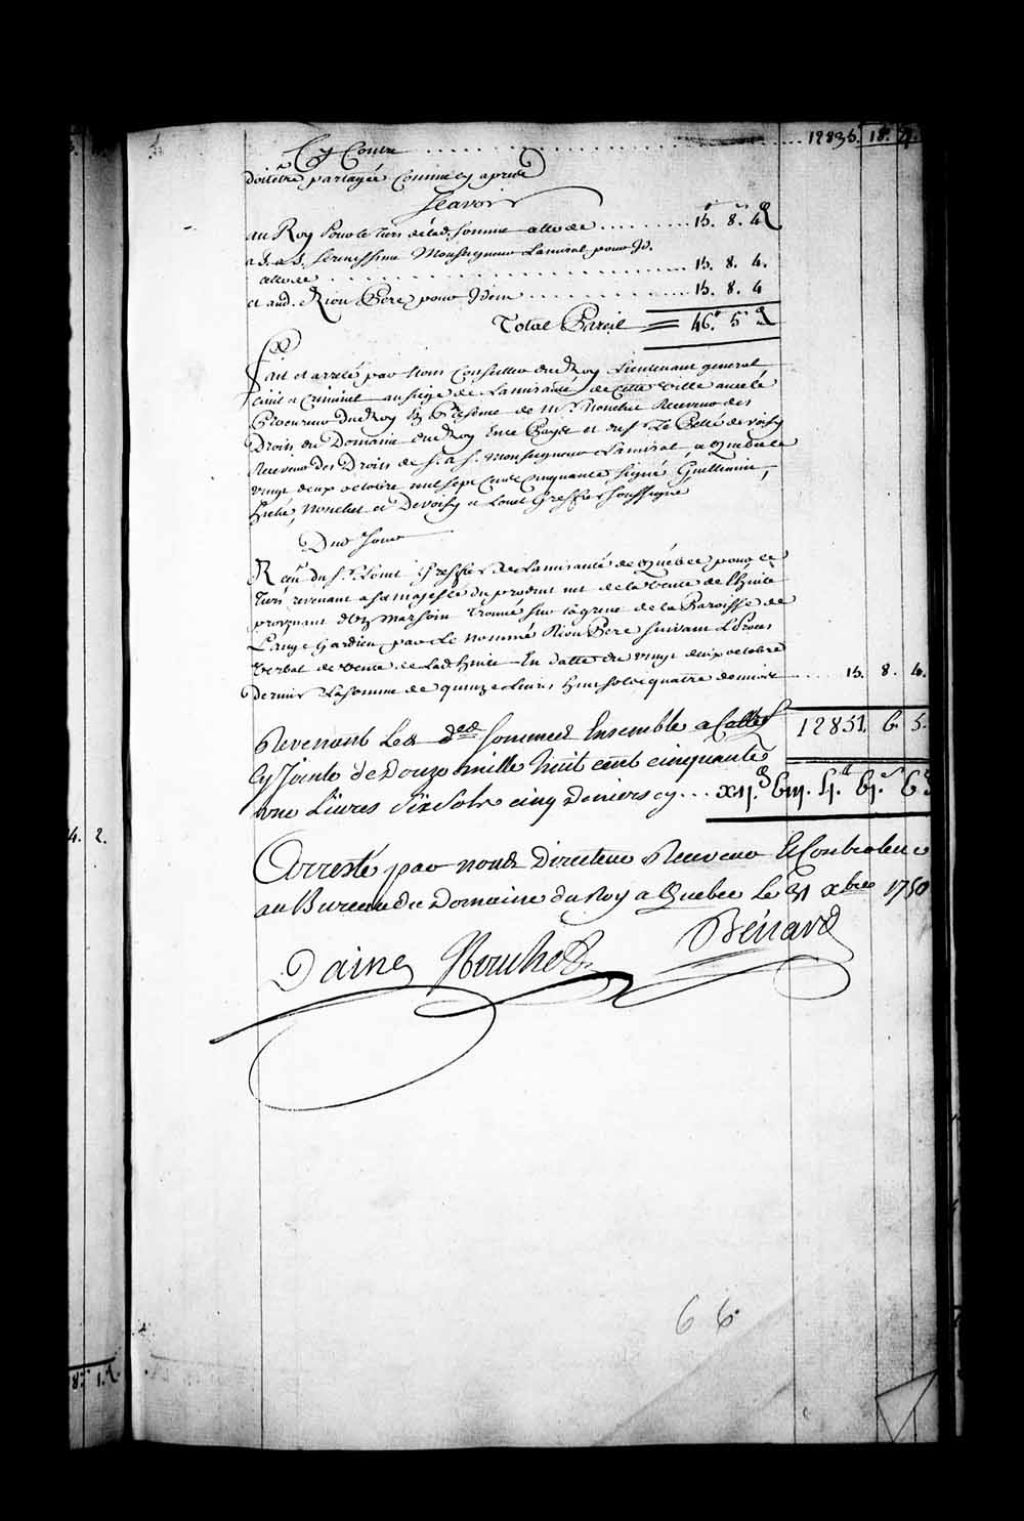 Cy Contre ........ 12835. 18. 1.
doit être partagée Comme cy aprés
Scavoir
au Roy Pour le tiers de lad. somme cette de ........ 15. 8. 4
a S. A. S. Serenissime Monseigneur Lamiral pour Id.
cette de ........ 15. 8. 4.
et aud. Rion Pere pour Idem ........ 15. 8. 4
Total Pareil = 46. 5.
Fait et arreté par Nous Conseiller du Roy Lieutenant general
Civil et Criminel au siege de Lamirauté de Cette ville avec le
Procureur du Roy En Presence de Mr. Nouchet Receveur des
Droits du Domaine du Roy En ce Pays et du Sr. Le Bellé de Voisy
Receveur Des Droits de S. A. S. Monseigneur Lamiral, a Quebec le
vingt deux octobre mil sept Cent Cinquante Signé Guillimin,
Hiché, Nouchet et De Voisy et Louet Greffier Soussigné
Dud Jour
Reçu du Sr. Louet Greffier de Lamirauté de Quebec pour le
tiers revenant a sa majesté du produit net de la vente de l'huile
provenant d'un Marsoin trouvé sur la greve de la Paroisse de
L'ange Gardien par le nommé Rion Pere suivant le Proces
Verbal de vente de Lad huile En datte du vingt deux octobre
Dernier La somme de quinze Livres huit sols quatre deniers .... 15. 8. 4.
Revenant Les des. sommes Ensemble a Celle 12851. 6. 5.
Cy Jointe de Douze mille huit cent cinquante
une Livres Six Sols cinq Deniers cy ...
Arresté par nous Directeur Receveur & Controleur
au Bureau du Domaine du Roy a Quebec Le 31 xbre 1750
Daine Nouchet Bénard
66.
4. 2.
8. 1.